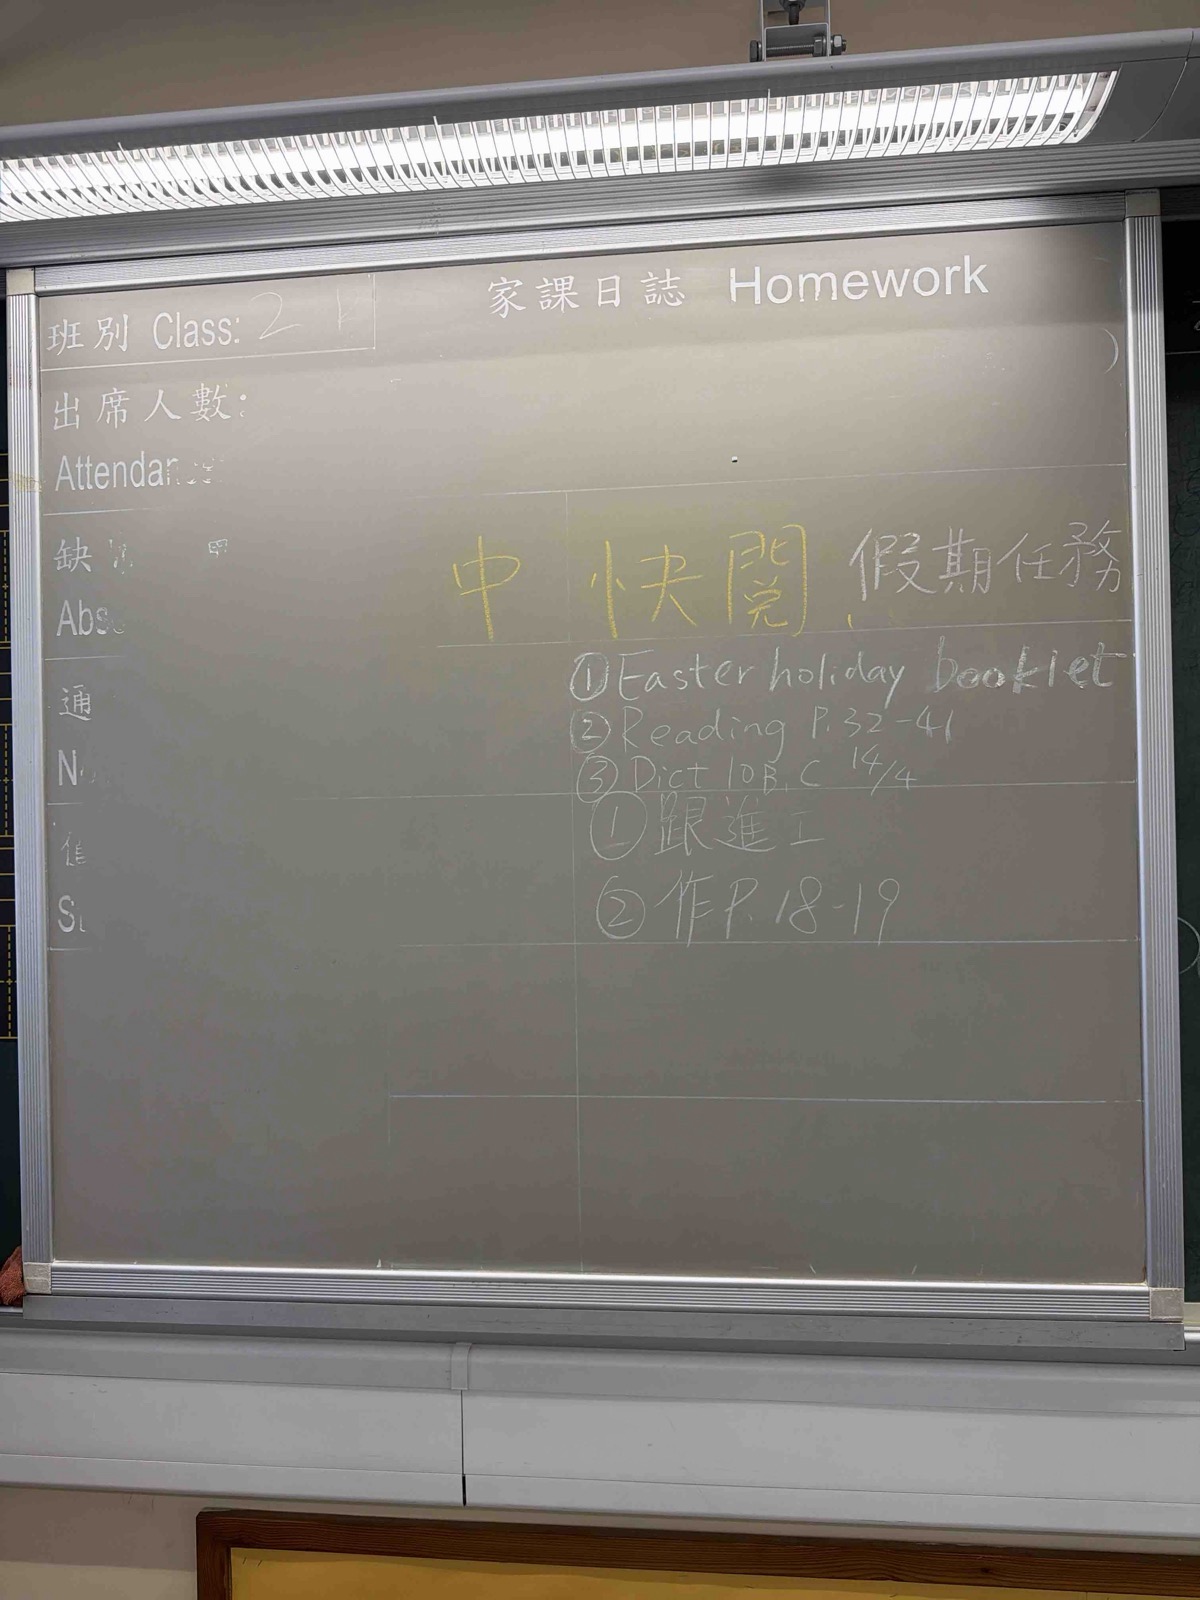 家課日誌 Homework
班別 Class: 2
出席人數:
Attendance
缺
中 快閱 假期任務
① Easter holiday booklet
通
② Reading P.32-41
③ Dict 10B, C 14/4
① 跟進工
② 作P. 18-19